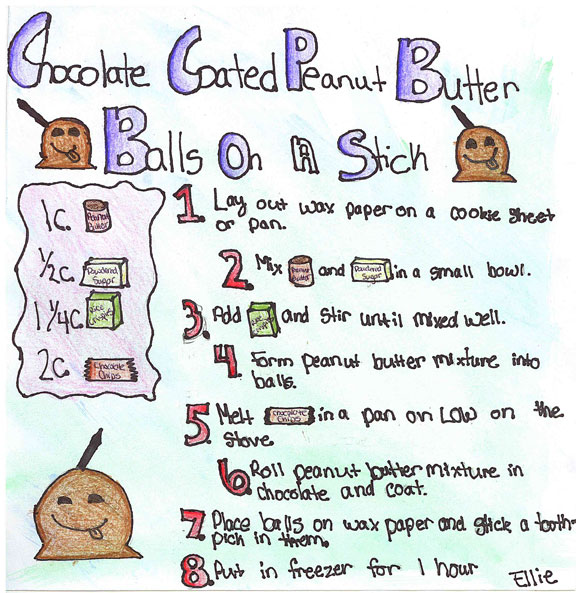 Chocolate Coated Peanut Butter
Balls On A Stick
1c. Peanut Butter
1/2c. Powdered Sugar
1 1/4c. Rice Crispies
2c. Chocolate Chips
1. Lay out wax paper on a cookie sheet
or pan.
2. Mix Peanut Butter and Powdered Sugar in a small bowl.
3. Add and stir until mixed well.
4 Form peanut butter mixture into
balls.
5 Melt chocolate chips in a pan on LOW on the
stove
6 Roll peanut butter mixture in
chocolate and coat.
7. Place balls on wax paper and stick a tooth-
pick in them.
8. Put in freezer for 1 hour
Ellie